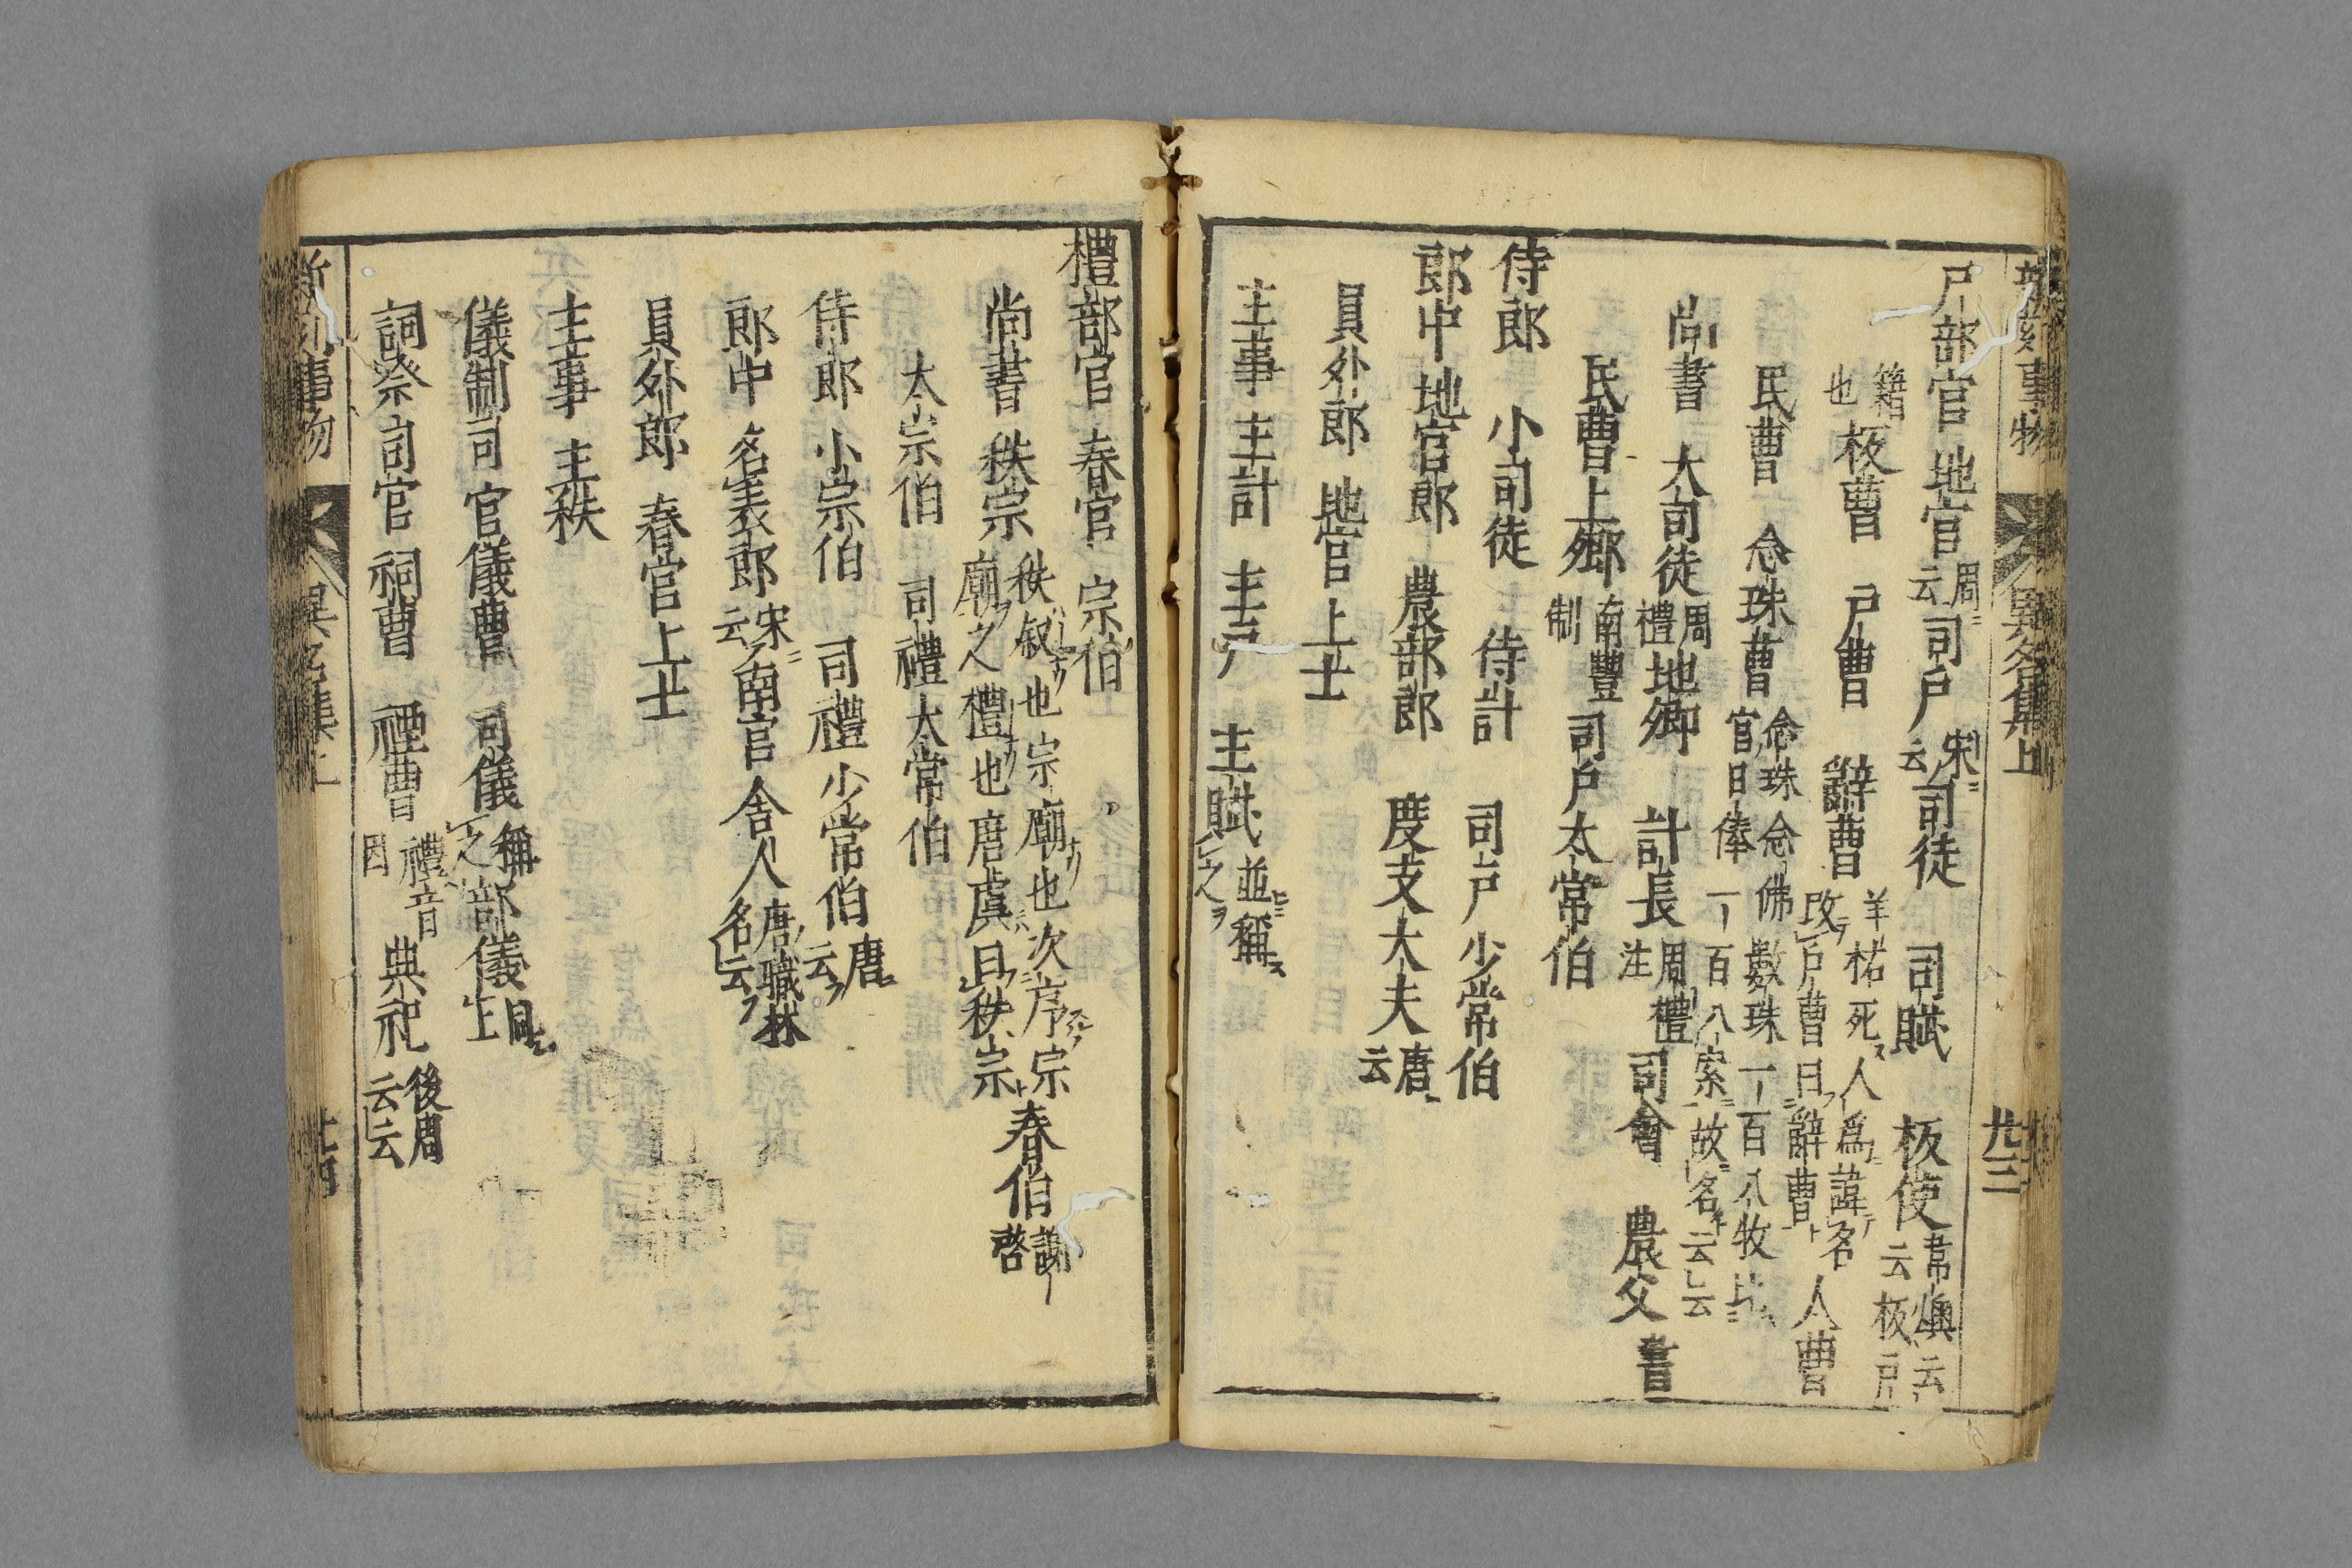 新刻事物 異名集上 十三
戸部官 地官 周云 司戸 宋云 司徒 司賦 板使 韋煥云云板戸
籍也 板曹 戸曹 辭曹 羊祜死人爲諱名改戸曹曰辭曹 人曹
民曹 念珠曹 命珠念佛數珠一百八牧比官日俸一百八索故名云云
尚書 大司徒 周禮 地卿 計長 周禮注 司會 農父 書
民曹上卿 南豐制 司戸太常伯
侍郎 小司徒 侍計 司戸少常伯
郎中 地官郎 農部郎 度支大夫 唐云
員外郎 地官上士
主事 主計 主戸 主賦 並稱之
禮部官 春官 宗伯
尚書 秩宗 秩叙也宗廟也次序宗廟之禮也唐虞曰秩宗 春伯 謝啓
太宗伯 司禮太常伯
侍郎 小宗伯 司禮少常伯 唐云
郎中 名表郎 宋云 南官舎人 唐職林名云
員外郎 春官上士
主事 主秩
儀制司官 儀曹 司儀 稱之 部儀 同上
詞祭司官 祠曹 禋曹 禮音因 典祀 後周云云
新刻事物 異名集上 十四